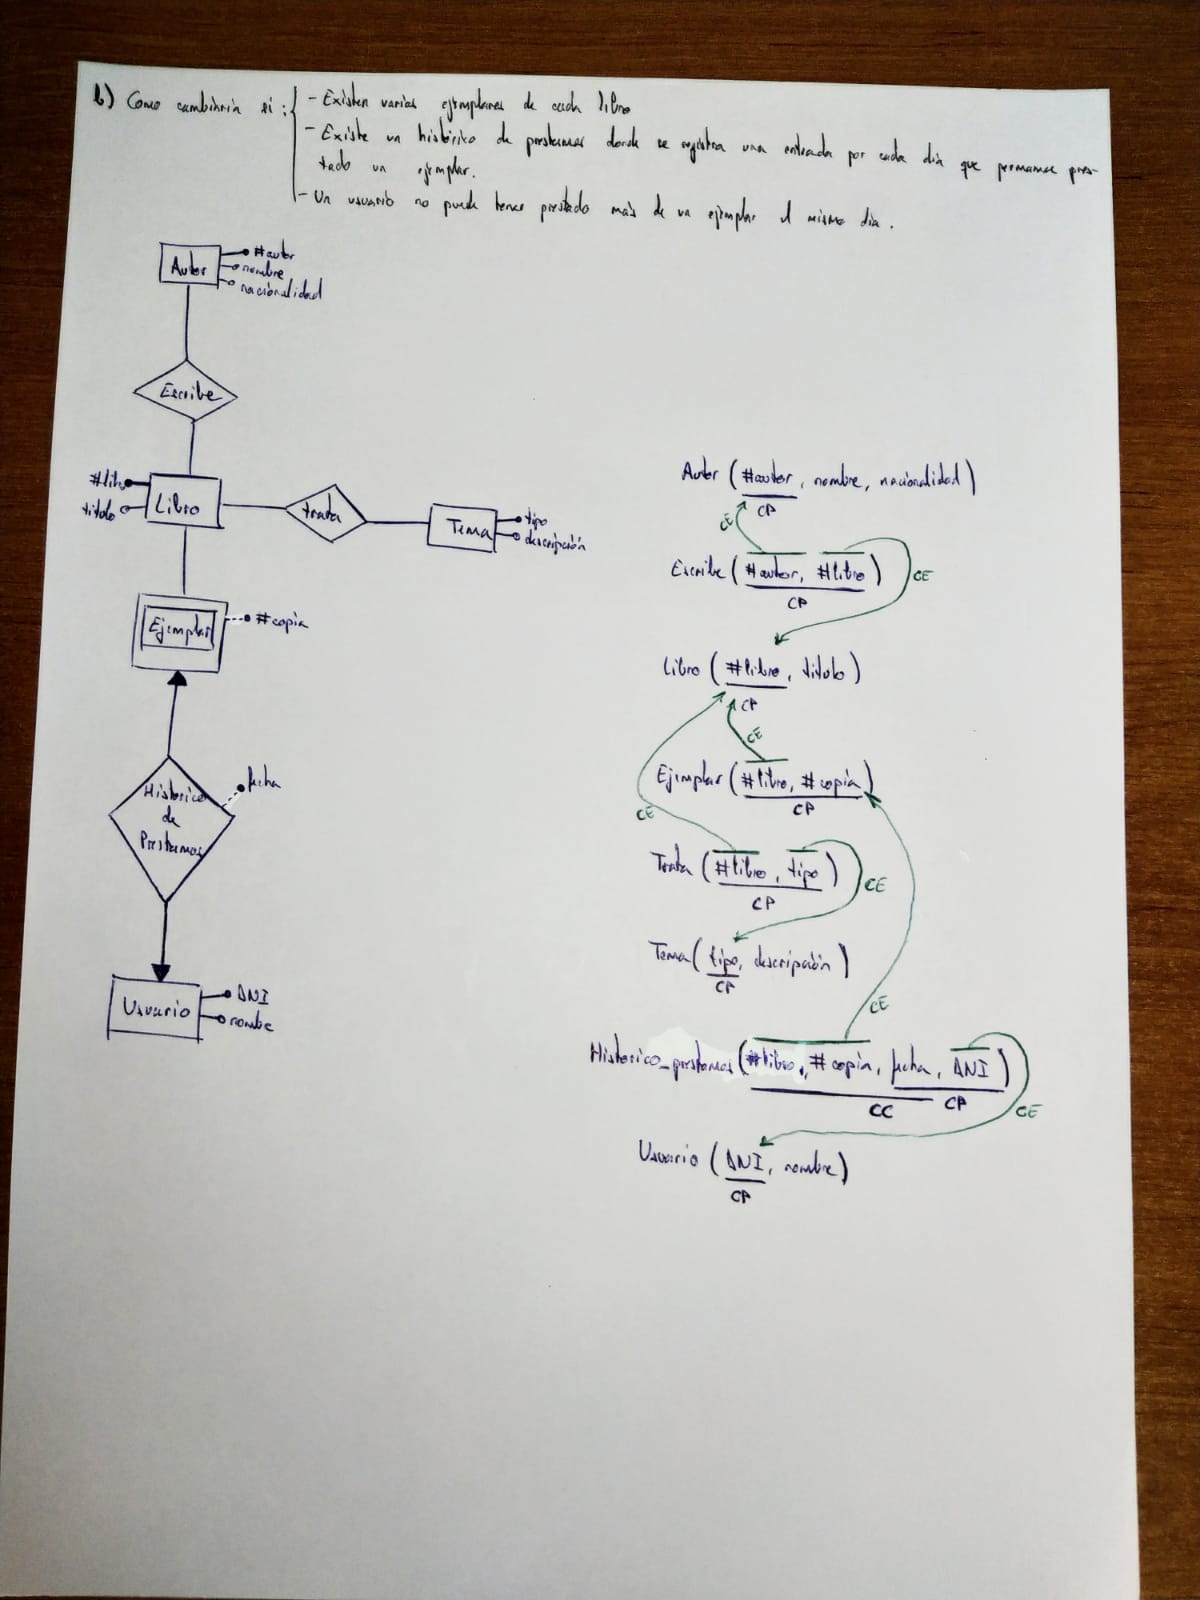 b) Como cambiaria si : - Existen varios ejemplares de cada libro
- Existe un histórico de prestamos donde se registra una entrada por cada día que permanece pres-
tado un ejemplar.
- Un usuario no puede tener prestado más de un ejemplar el mismo día.
Autor
#autor
nombre
nacionalidad
Escribe
#libro
titulo
Libro
trata
Tema
tipo
descripción
Ejemplar
#copia
Historico
de
Prestamos
fecha
Usuario
DNI
nombre
Autor (#autor, nombre, nacionalidad)
CP
CE
Escribe (#autor, #libro)
CE
CP
Libro (#libro, titulo)
CP
CE
Ejemplar (#libro, #copia)
CP
CE
Trata (#libro, tipo)
CE
CP
Tema (tipo, descripción)
CP
CE
Historico_prestamos (#libro, #copia, fecha, DNI)
CC
CP
CE
Usuario (DNI, nombre)
CP